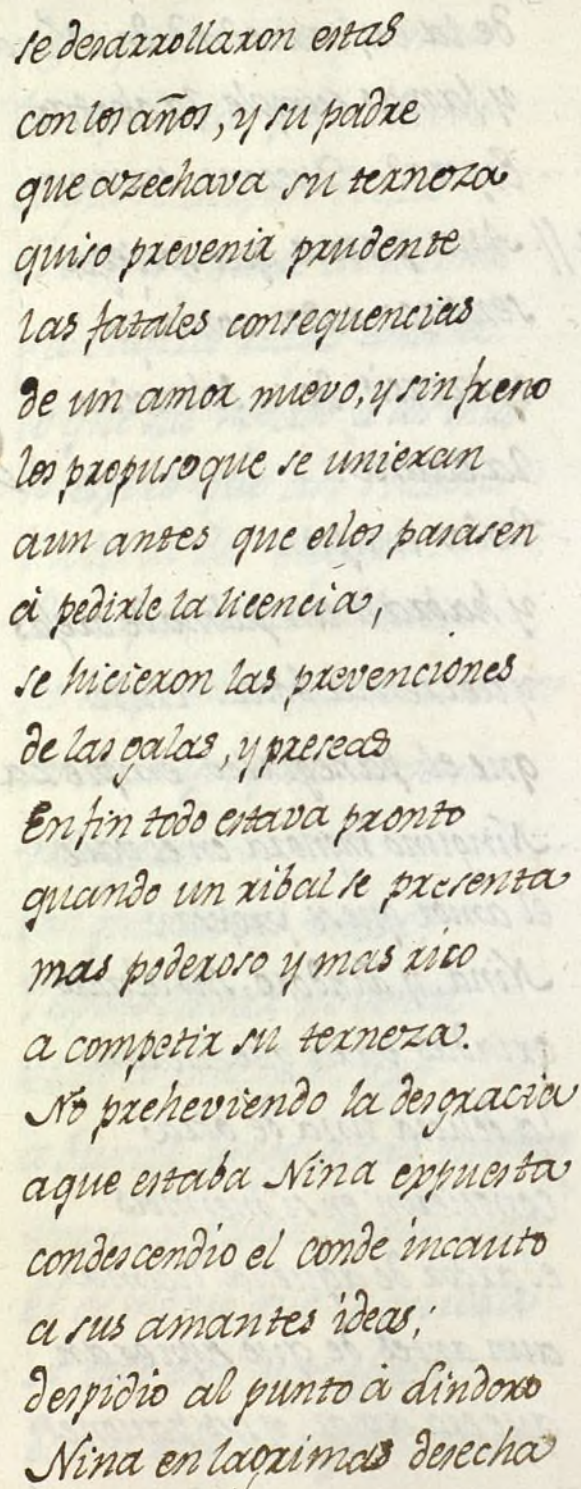 se desarrollaron estas
con los años, y su padre
que azechava su terneza
quiso prevenir prudente
las fatales consequencias
de un amor nuevo, y sin freno
les propuso que se unieran
aun antes que ellos pasasen
á pedirle la licencia,
se hicieron las prevenciones
de las galas, y preseas
En fin todo estava pronto
quando un ribal se presenta
mas poderoso y mas rico
a competir su terneza.
No preheviendo la desgracia
aque estaba Nina expuesta
condescendio el conde incauto
a sus amantes ideas;
despidio al punto á Lindoro
Nina en lagrimas desecha